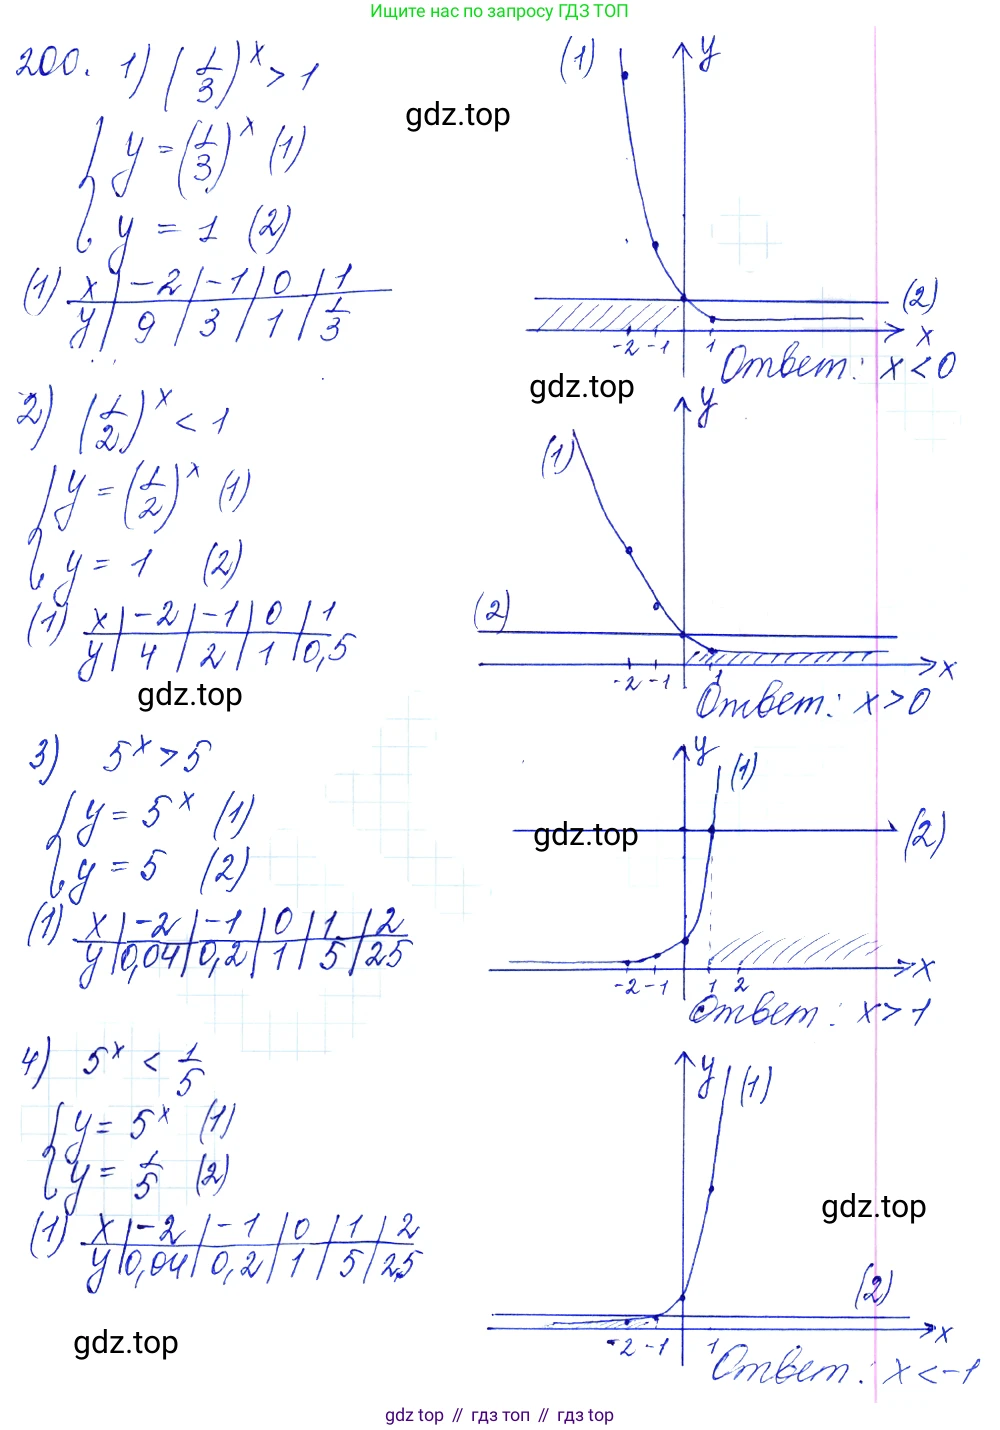 Ищите нас по запросу ГДЗ ТОП
200. 1) (1/3)^x > 1
{ y = (1/3)^x (1)
y = 1 (2)
(1) x | -2 | -1 | 0 | 1
y | 9 | 3 | 1 | 1/3
(1) y
gdz.top
(2)
-2 -1 1 x
Ответ: x < 0
2) (1/2)^x < 1
{ y = (1/2)^x (1)
y = 1 (2)
(1) x | -2 | -1 | 0 | 1
y | 4 | 2 | 1 | 0,5
gdz.top
gdz.top
y
(1)
(2)
-2 -1 1 x
Ответ: x > 0
3) 5^x > 5
{ y = 5^x (1)
y = 5 (2)
(1) x | -2 | -1 | 0 | 1 | 2
y | 0,04 | 0,2 | 1 | 5 | 25
y (1)
gdz.top
(2)
-2 -1 1 2 x
Ответ: x > 1
4) 5^x < 1/5
{ y = 5^x (1)
y = 1/5 (2)
(1) x | -2 | -1 | 0 | 1 | 2
y | 0,04 | 0,2 | 1 | 5 | 25
gdz.top
y (1)
gdz.top
(2)
-2 -1 1 x
Ответ: x < -1
gdz top // гдз топ // gdz top